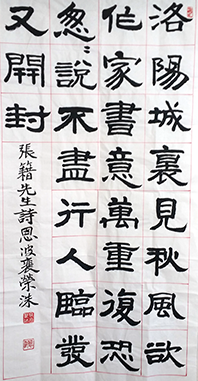 洛陽城裏見秋風欲
作家書意萬重復恐
怱〻說不盡行人臨發
又開封
張籍先生詩思波裵榮洙